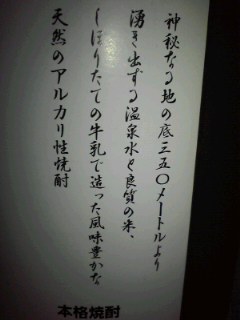 神秘なる地の底三五〇メートルより
湧き出ずる温泉水と良質の米、
しぼりたての牛乳で造った風味豊かな
天然のアルカリ性焼酎
本格焼酎